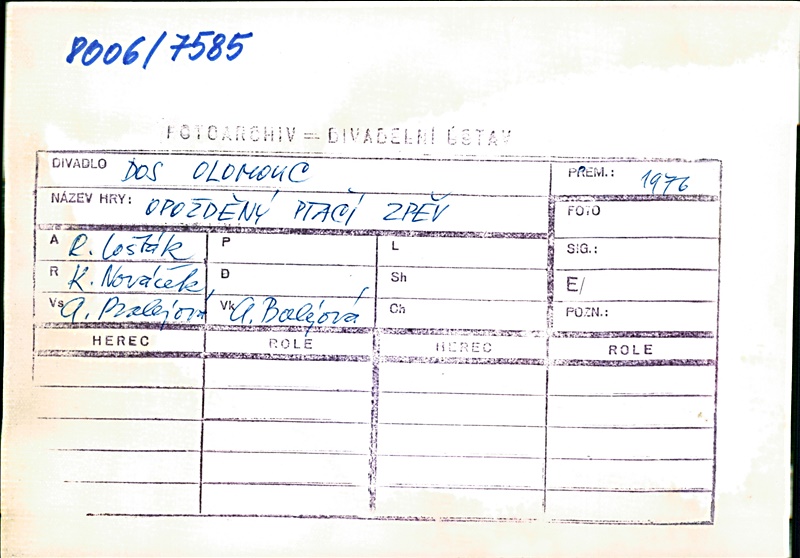 8006/7585
FOTOARCHIV — DIVADELNÍ ÚSTAV
DIVADLO DOS OLOMOUC PREM.: 1976
NÁZEV HRY: OPOŽDĚNÝ PTAČÍ ZPĚV FOTO
A R. Lošťák P L SIG.:
R K. Nováček D Sh E/
Vs A. Vk A. Ch POZN.:
HEREC ROLE HEREC ROLE